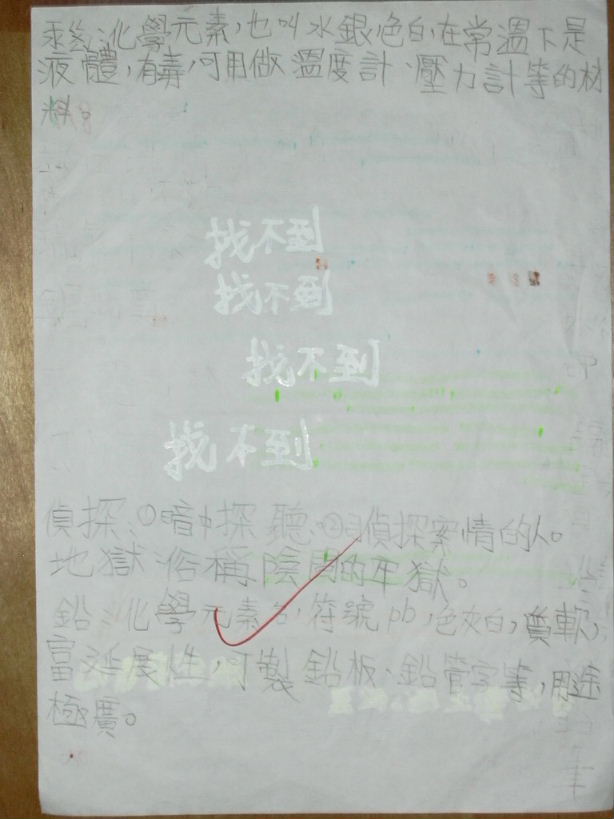 汞：化學元素，也叫水銀，色白，在常溫下是
液體，有毒，可用做溫度計、壓力計等的材
料。
找不到
找不到
找不到
找不到
偵探：①暗中探聽。②偵探案情的人。
地獄：俗稱陰間的牢獄。
鉛：化學元素名，符號pb，色灰白，質軟，
富延展性，可製鉛板、鉛管字等，用途
極廣。